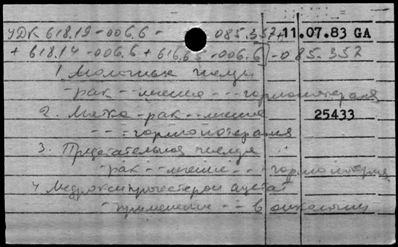 УДК 618.19-006.6 - 085.357+ 11.07.83 GA
+ 618.14-006.6 + 616.65-006.6 -085.357
1. Молочные железы
-рак - - - гормонотерапия
2. Матка -рак -
25433
- - - гормонотерапия
3. Предстательная железа
рак - - - гормонотерапия
4. Медроксипрогестерон ацетат
- применение - - в онкологии